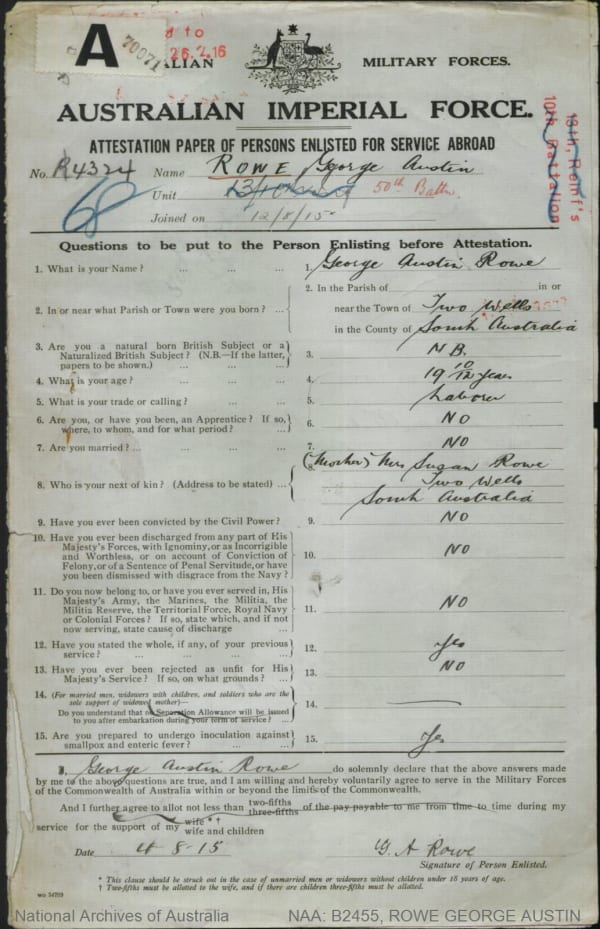 A
70071
26.2.16
MILITARY FORCES.
AUSTRALIAN IMPERIAL FORCE.
ATTESTATION PAPER OF PERSONS ENLISTED FOR SERVICE ABROAD
No. R4324 Name ROWE George Austin
Unit 13/10 50th Battn.
Joined on 12/8/15
68
13th, Reinf's
10th Battalion
Questions to be put to the Person Enlisting before Attestation.
1. What is your Name? ... ... ... 1. George Austin Rowe
2. In or near what Parish or Town were you born? ... 2. In the Parish of in or
near the Town of Two Wells
in the County of South Australia
3. Are you a natural born British Subject or a
Naturalized British Subject? (N.B.—If the latter,
papers to be shown.) ... ... ... 3. N.B.
4. What is your age? ... ... ... 4. 19 10/12 years
5. What is your trade or calling? ... ... 5. Laborer
6. Are you, or have you been, an Apprentice? If so,
where, to whom, and for what period? ... 6. NO
7. Are you married? ... ... ... ... 7. NO
8. Who is your next of kin? (Address to be stated) ... 8. (Mother) Mrs Susan Rowe
Two Wells
South Australia
9. Have you ever been convicted by the Civil Power? 9. NO
10. Have you ever been discharged from any part of His
Majesty's Forces, with Ignominy, or as Incorrigible
and Worthless, or on account of Conviction of
Felony, or of a Sentence of Penal Servitude, or have
you been dismissed with disgrace from the Navy? 10. NO
11. Do you now belong to, or have you ever served in, His
Majesty's Army, the Marines, the Militia, the
Militia Reserve, the Territorial Force, Royal Navy
or Colonial Forces? If so, state which, and if not
now serving, state cause of discharge ... 11. NO
12. Have you stated the whole, if any, of your previous
service? ... ... ... ... 12. Yes
13. Have you ever been rejected as unfit for His
Majesty's Service? If so, on what grounds? ... 13. NO
14. (For married men, widowers with children, and soldiers who are the
sole support of widowed mother)—
Do you understand that no Separation Allowance will be issued
to you after embarkation during your term of service? ... 14. —
15. Are you prepared to undergo inoculation against
smallpox and enteric fever? ... ... 15. Yes
I, George Austin Rowe do solemnly declare that the above answers made
by me to the above questions are true, and I am willing and hereby voluntarily agree to serve in the Military Forces
of the Commonwealth of Australia within or beyond the limits of the Commonwealth.
And I further agree to allot not less than two-fifths three-fifths of the pay payable to me from time to time during my
service for the support of my wife * † wife and children
Date 4 8-15 G. A Rowe
Signature of Person Enlisted.
* This clause should be struck out in the case of unmarried men or widowers without children under 18 years of age.
† Two-fifths must be allotted to the wife, and if there are children three-fifths must be allotted.
National Archives of Australia NAA: B2455, ROWE GEORGE AUSTIN